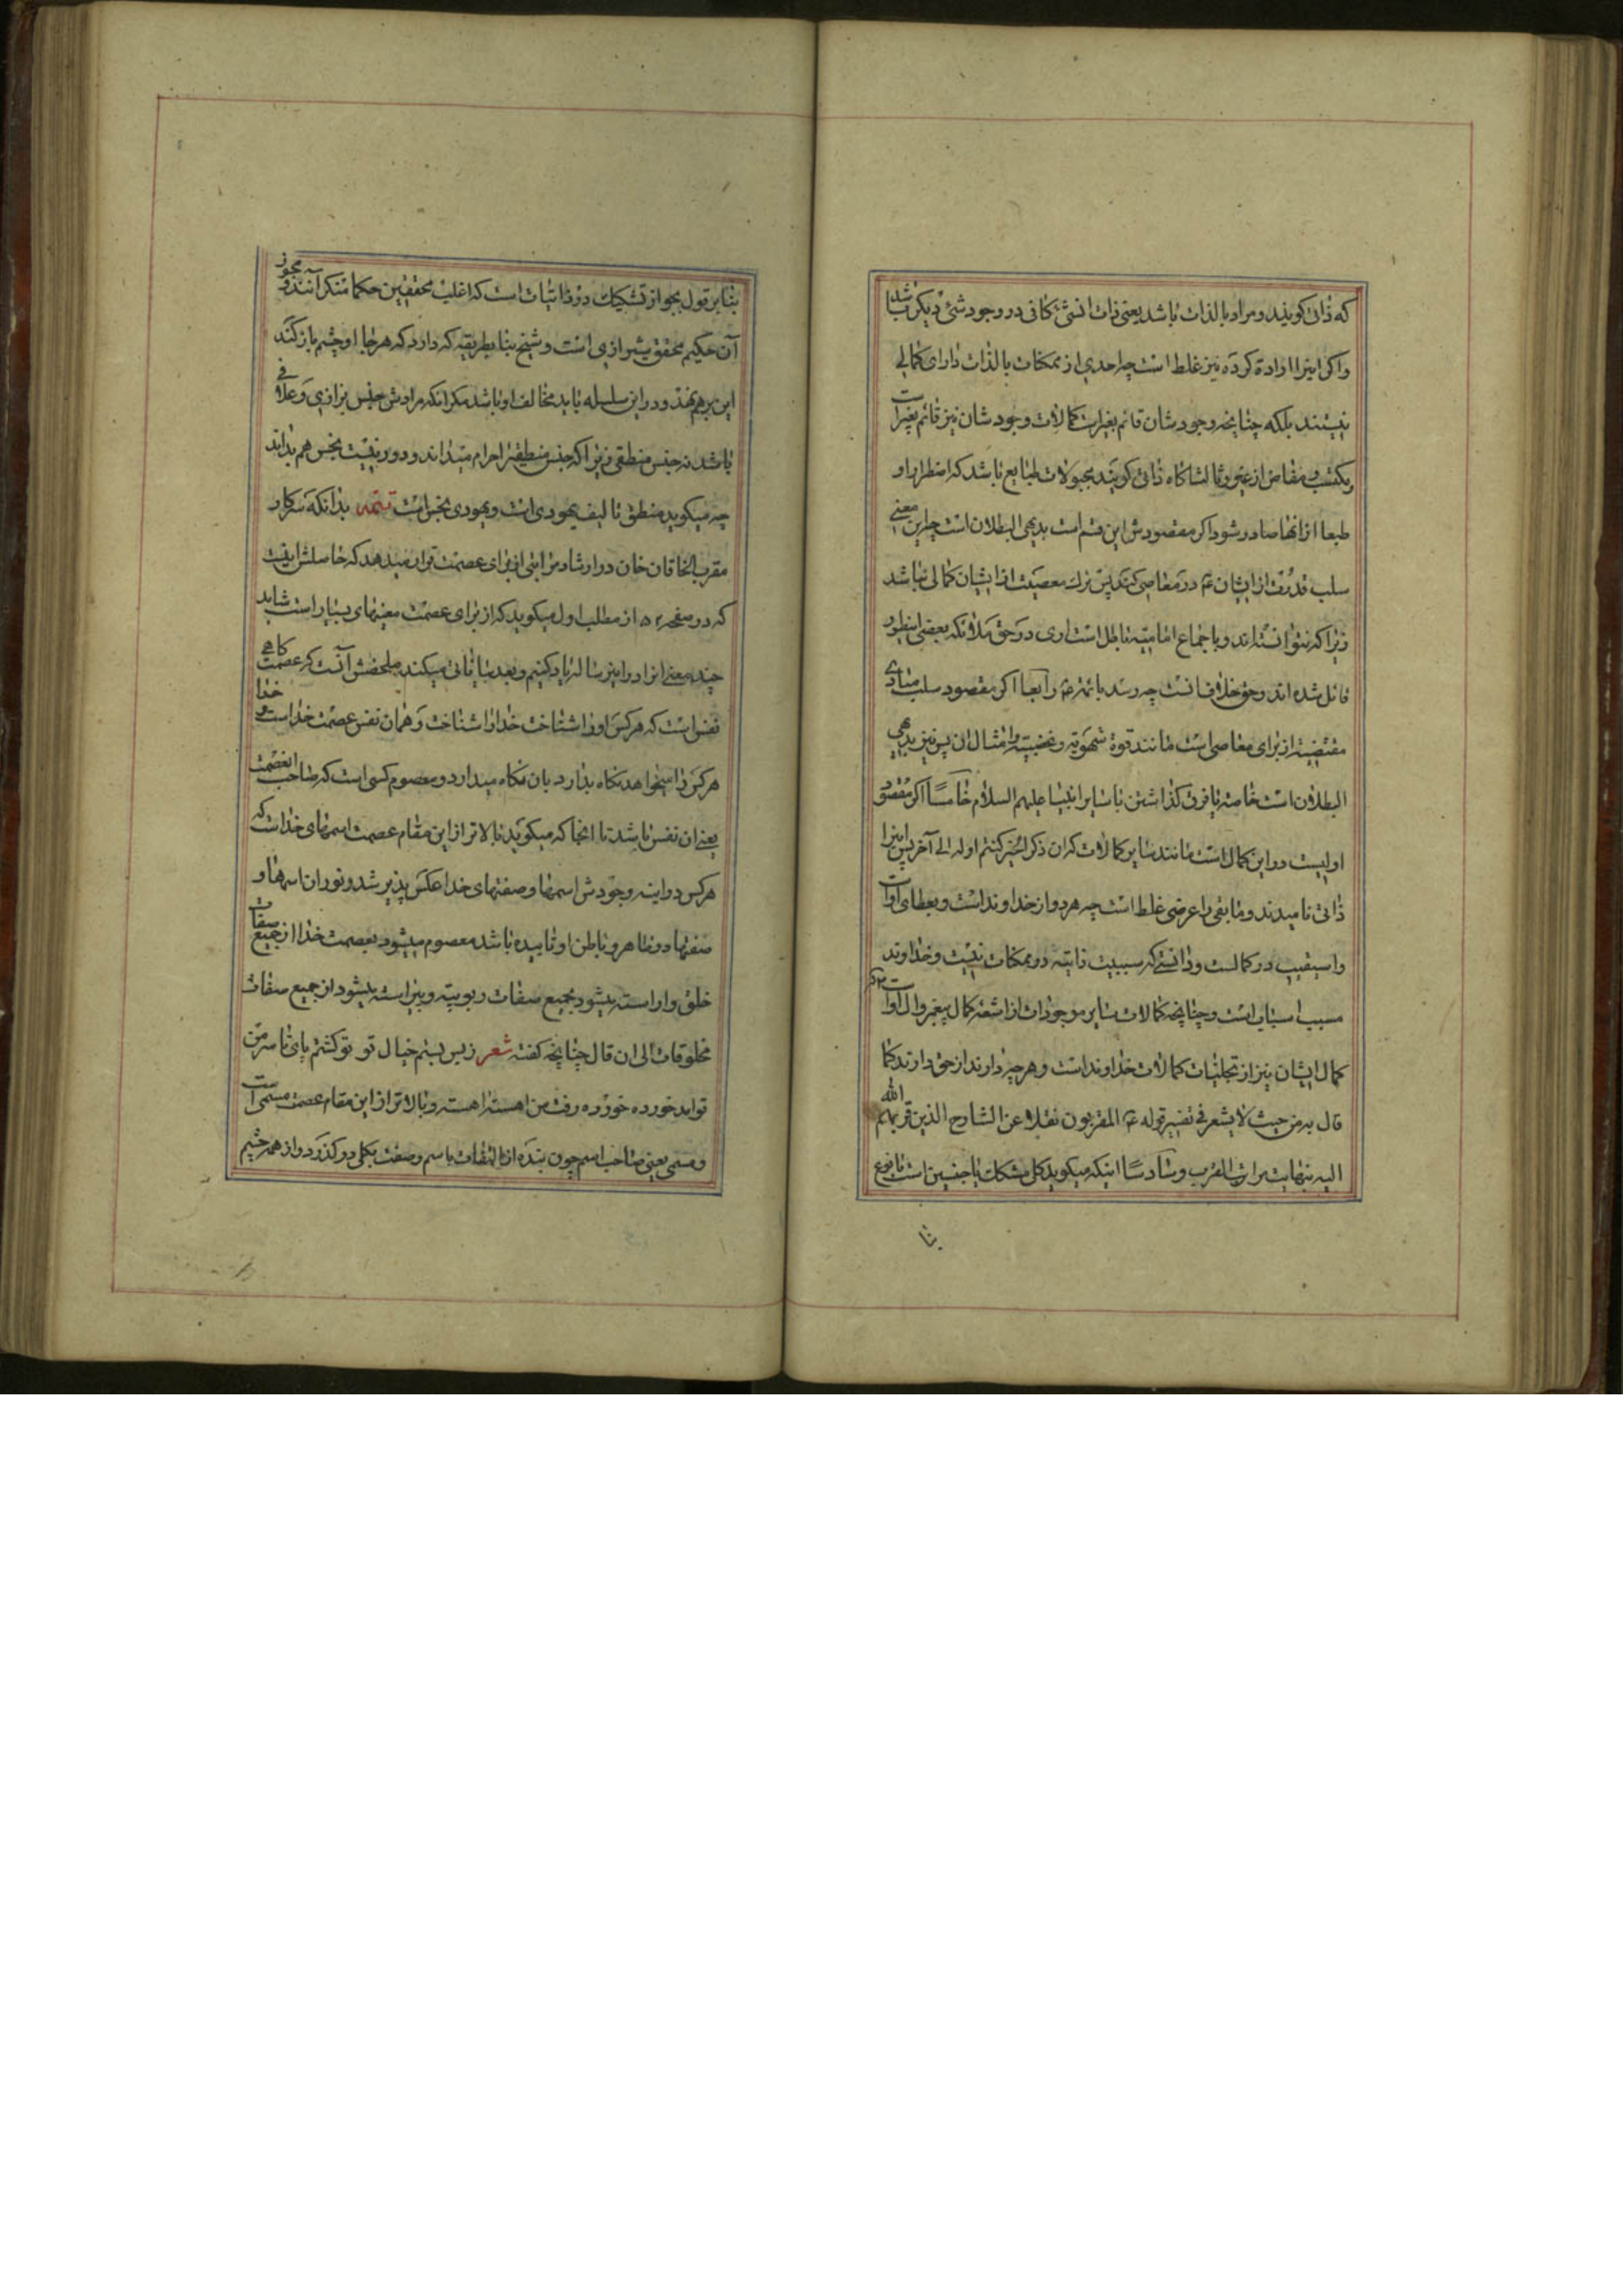 که ذاتی کویند و مراد بالذات باشد یعنی ذات انشیء کافی در وجود شیء دیکر باشد
واکر اینرا اراده کرده نیز غلط است چه احدی از ممکنات بالذات دارای کمالی
نیستند بلکه چنانچه وجودشان قائم بغیر است کمالات وجودشان نیز قائم بغیر است
کاه ذاتی کویند بمجبولات طبایع باشد که اضطرارا و
طبعا از انها صادر شود اکر مقصودش این قسم است بدیهی البطلان است چه این معنی
سلب قدرت از ایشان ع در معاصی کند پس ترک معصیت از ایشان کمالی نباشد
زیرا که نتوانسته اند و باجماع امامیه باطل است اری در حق ملائکه بعضی اینطور
قائل شده اند و حق خلاف انست چه رسد بائمه ع رابعا اکر مقصود سلب مبادی
مقتضیه از برای معاصی است مانند قوة شهویه و غضبیه و امثال ان پس نیز بدیهی
البطلان است خاصه با فرق کذاشتن با سایر انبیا علیهم السلام خامسا اکر مقصود
اولیت در این کمال است مانند سایر کمالات که ان ذکر الخیر کنتم اوله الی آخر پس اینرا
ذاتی نامیدند و مابقی را عرضی غلط است چه هر دو از خداوند است و بعطای او است
واسبقیت در کمالست و دانستی که سببیت ذاتیه در ممکنات نیست و خداوند
مسبب اسباب است و چنانچه کمالات سایر موجودات از اشعه کمال پیغمبر و ال او است
کمال ایشان نیز از تجلیات کمالات خداوند است و هر چه دارند از حق دارند کما
قال به من حیث لا یشعر فی تفسیر قوله ع المقربون نقلا عن الشارح الذین قربهم الله
الیه بنهایت مراتب القرب و سادسا اینکه میکوید کل مشکک یا جنسین است یا نوع
بنا
بنا بر قول بجواز تشکیک در ذاتیات است که اغلب محققین حکما منکر آنند و مجوز
آن حکیم محقق شیرازی است و شیخ بنا بطریقه که دارد که هر جا او چشم باز کند
این برهم نهند و در این سلسله باید مخالف او باشد مکر انکه مرادش جنس بزازی و علافی
باشد نه جنس منطقی زیرا که جنس منطقیرا حرام میداند و دور نیست نجس هم بداند
چه میکوید منطق تالیف یهودی است و یهودی نجس است تتمه بدانکه سرکار
مقرب الخاقان خان در ارشاد مراتبی از برای عصمت قرار میدهد که حاصلش اینست
که در صفحه ۵۲ از مطلب اول میکوید که از برای عصمت معنیهای بسیار است شاید
چند معنی انرا در این رساله یاد کنیم و بعد بیاناتی میکند ملخصش آنست که عصمت کاهی
نفس است که هر کس او را شناخت خدا را شناخت و همان نفس عصمت خداست و خدا
هر کس را میخواهد نکاه بدارد بان نکاه میدارد و معصوم کسی است که صاحب انعصمت
یعنی ان نفس باشد تا انجا که میکوید بالاتر از این مقام عصمت اسمهای خداست که
هر کس در اینه وجودش اسمها و صفتهای خدا عکس پذیر شد و نور ان اسمها و
صفتها در ظاهر و باطن او تابیده باشد معصوم میشود بعصمت خدا از جمیع صفات
خلق و اراسته میشود بجمیع صفات ربوبیه و پیراسته میشود از جمیع صفات
مخلوقات الی ان قال چنانچه کفته شعر ز بس بستم خیال تو تو کشتم پای تا سر من
تو امد خورده خورده رفت من اهسته اهسته و بالاتر از این مقام عصمت مسمی است
و مسمی یعنی صاحب اسم چون بنده از التفات باسم و صفت بکلی در کذرد و از همه چشم